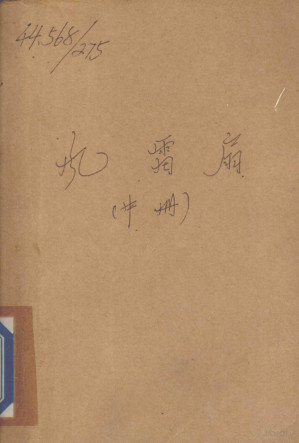 44.568/275
风雷扇
(中册)